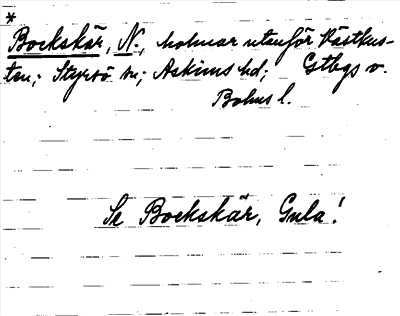 *
Bockskär, N., holmar utanför Västkus-
ten; Styrsö sn; Askims hd; Gtbgs o.
Bohus l.
Se Bockskär, Gula!